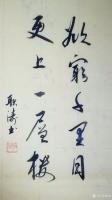 欲窮千里目
更上一層樓
耿濤书